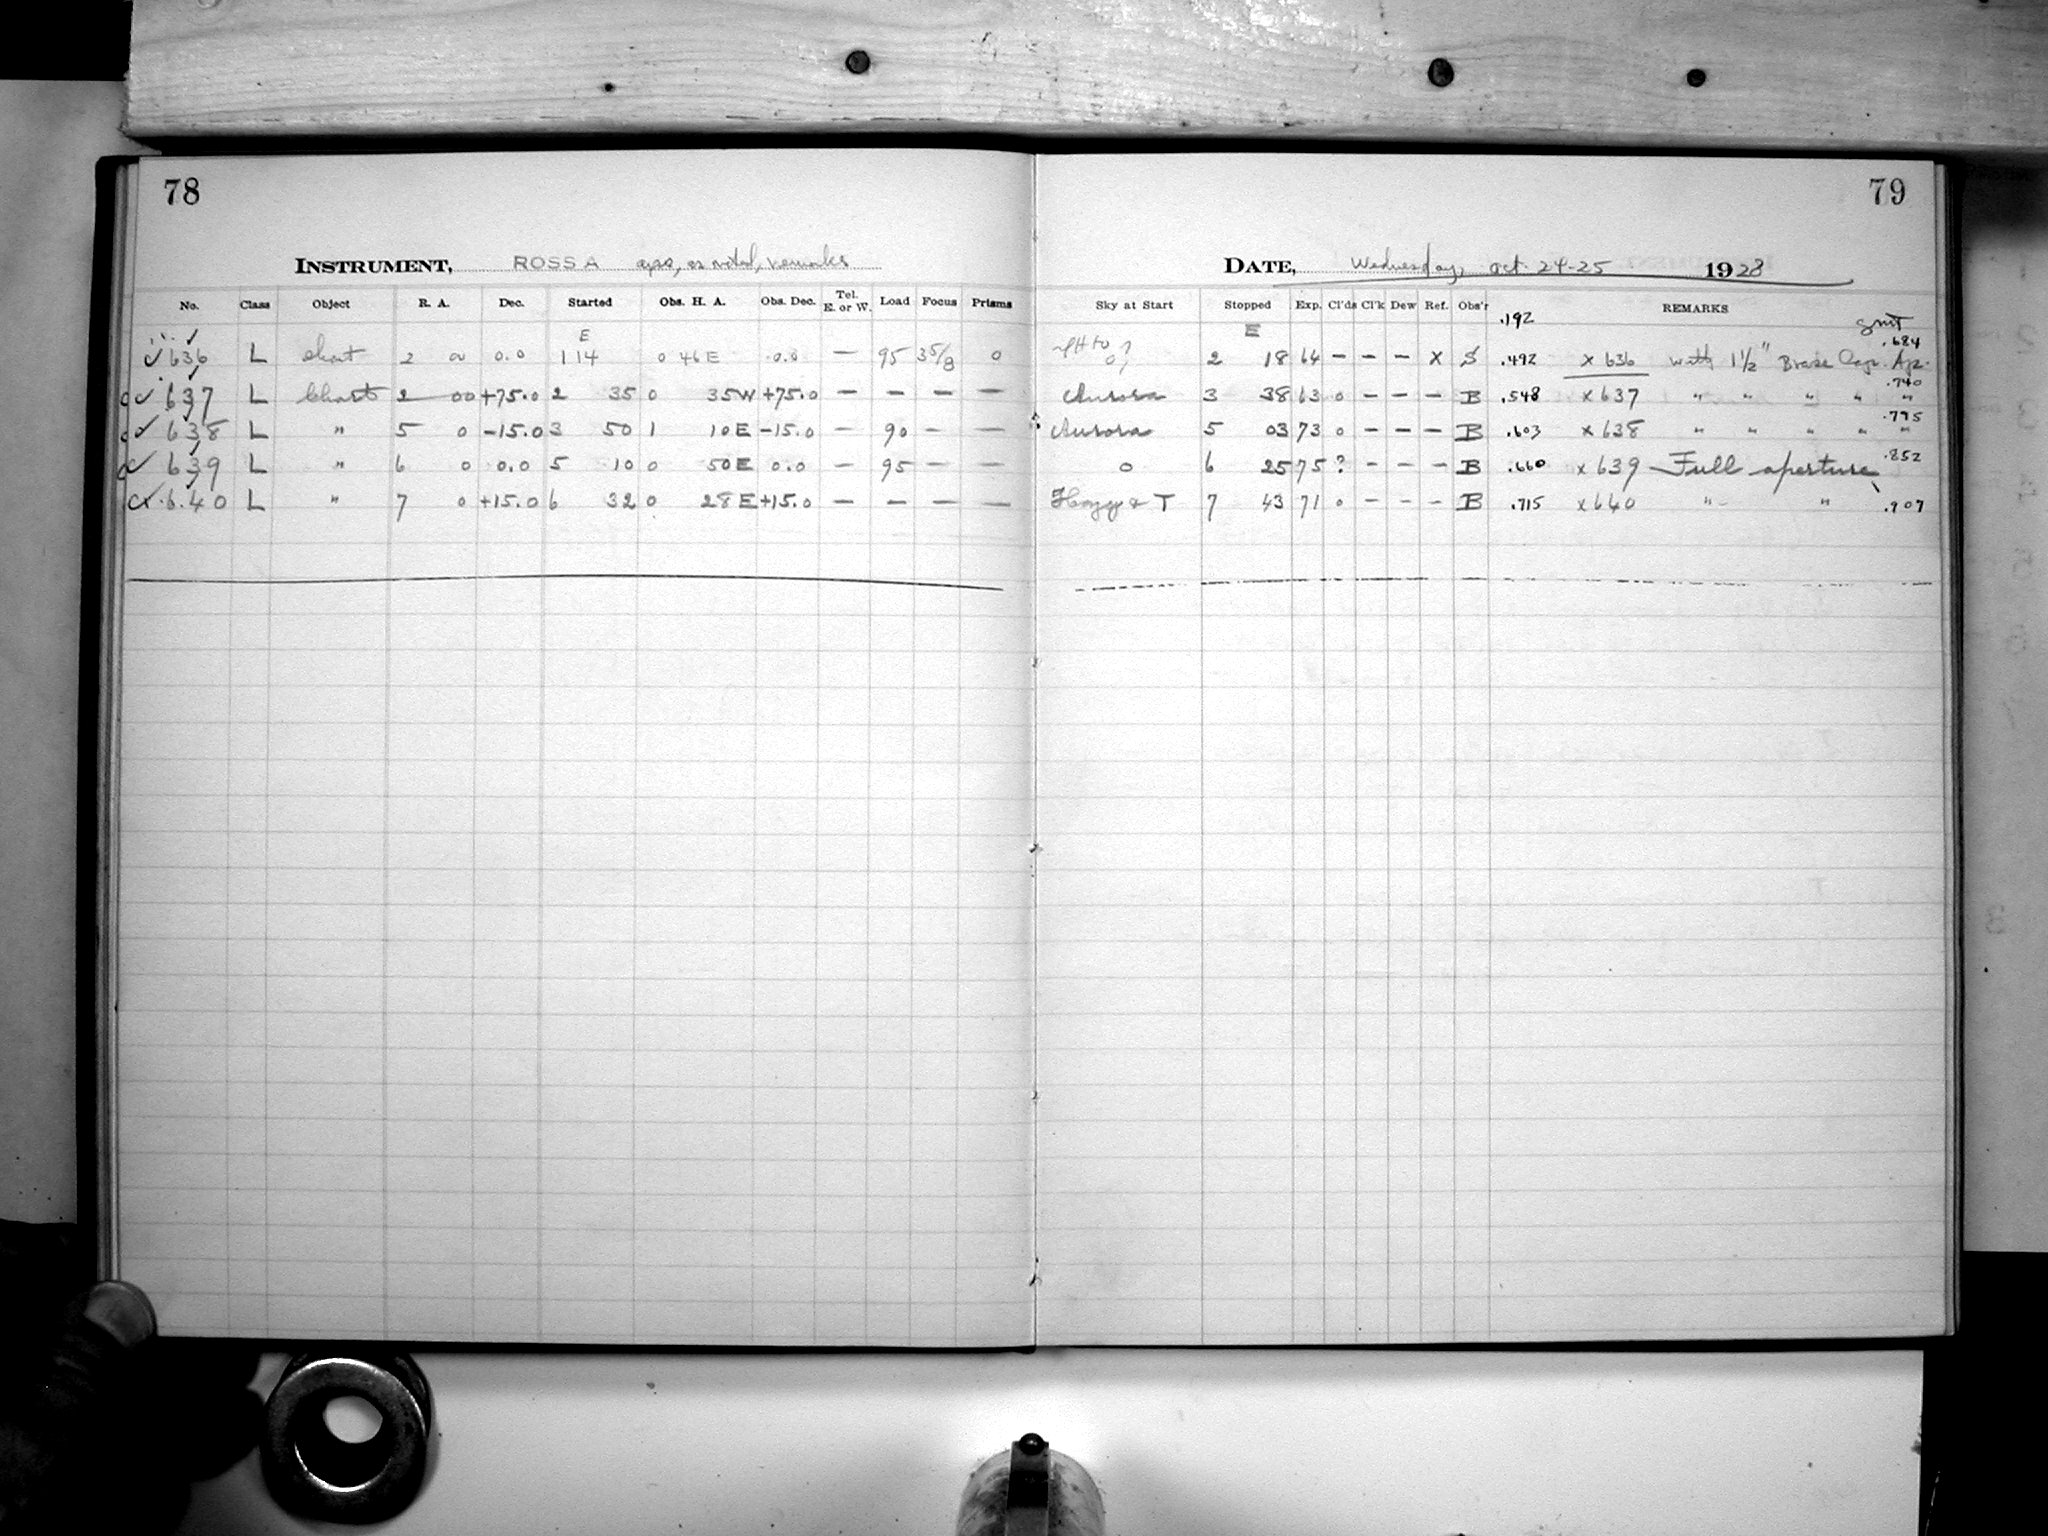 78
INSTRUMENT, ROSS A aps, as noted, remarks
No. Class Object R. A. Dec. Started Obs. H. A. Obs. Dec. Tel. E. or W. Load Focus Prisms
E
✓ 636 L Chart 2 0 0.0 1 14 0 46 E 0.0 — 95 35/8 0
✓ 637 L Chart 2 00 +75.0 2 35 0 35 W +75.0 — — — —
✓ 638 L " 5 0 -15.0 3 50 1 10 E -15.0 — 90 — —
✓ 639 L " 6 0 0.0 5 10 0 50 E 0.0 — 95 — —
640 L " 7 0 +15.0 6 32 0 28 E +15.0 — — — —
79
DATE, Wednesday, Oct. 24-25 1928
Sky at Start Stopped Exp. Cl'ds Cl'k Dew Ref. Obs'r REMARKS
.192 GMT
E .684
to 0? 2 18 64 — — — X S .492 x 636 with 1½" Brass Ap.
Aurora 3 38 63 0 — — — B .548 x 637 " " " " " .740
Aurora 5 03 73 0 — — — B .603 x 638 " " " " " .795
0 6 25 75 ? — — — B .660 x 639 Full aperture .852
Hazy & T 7 43 71 0 — — — B .715 x 640 " " .907